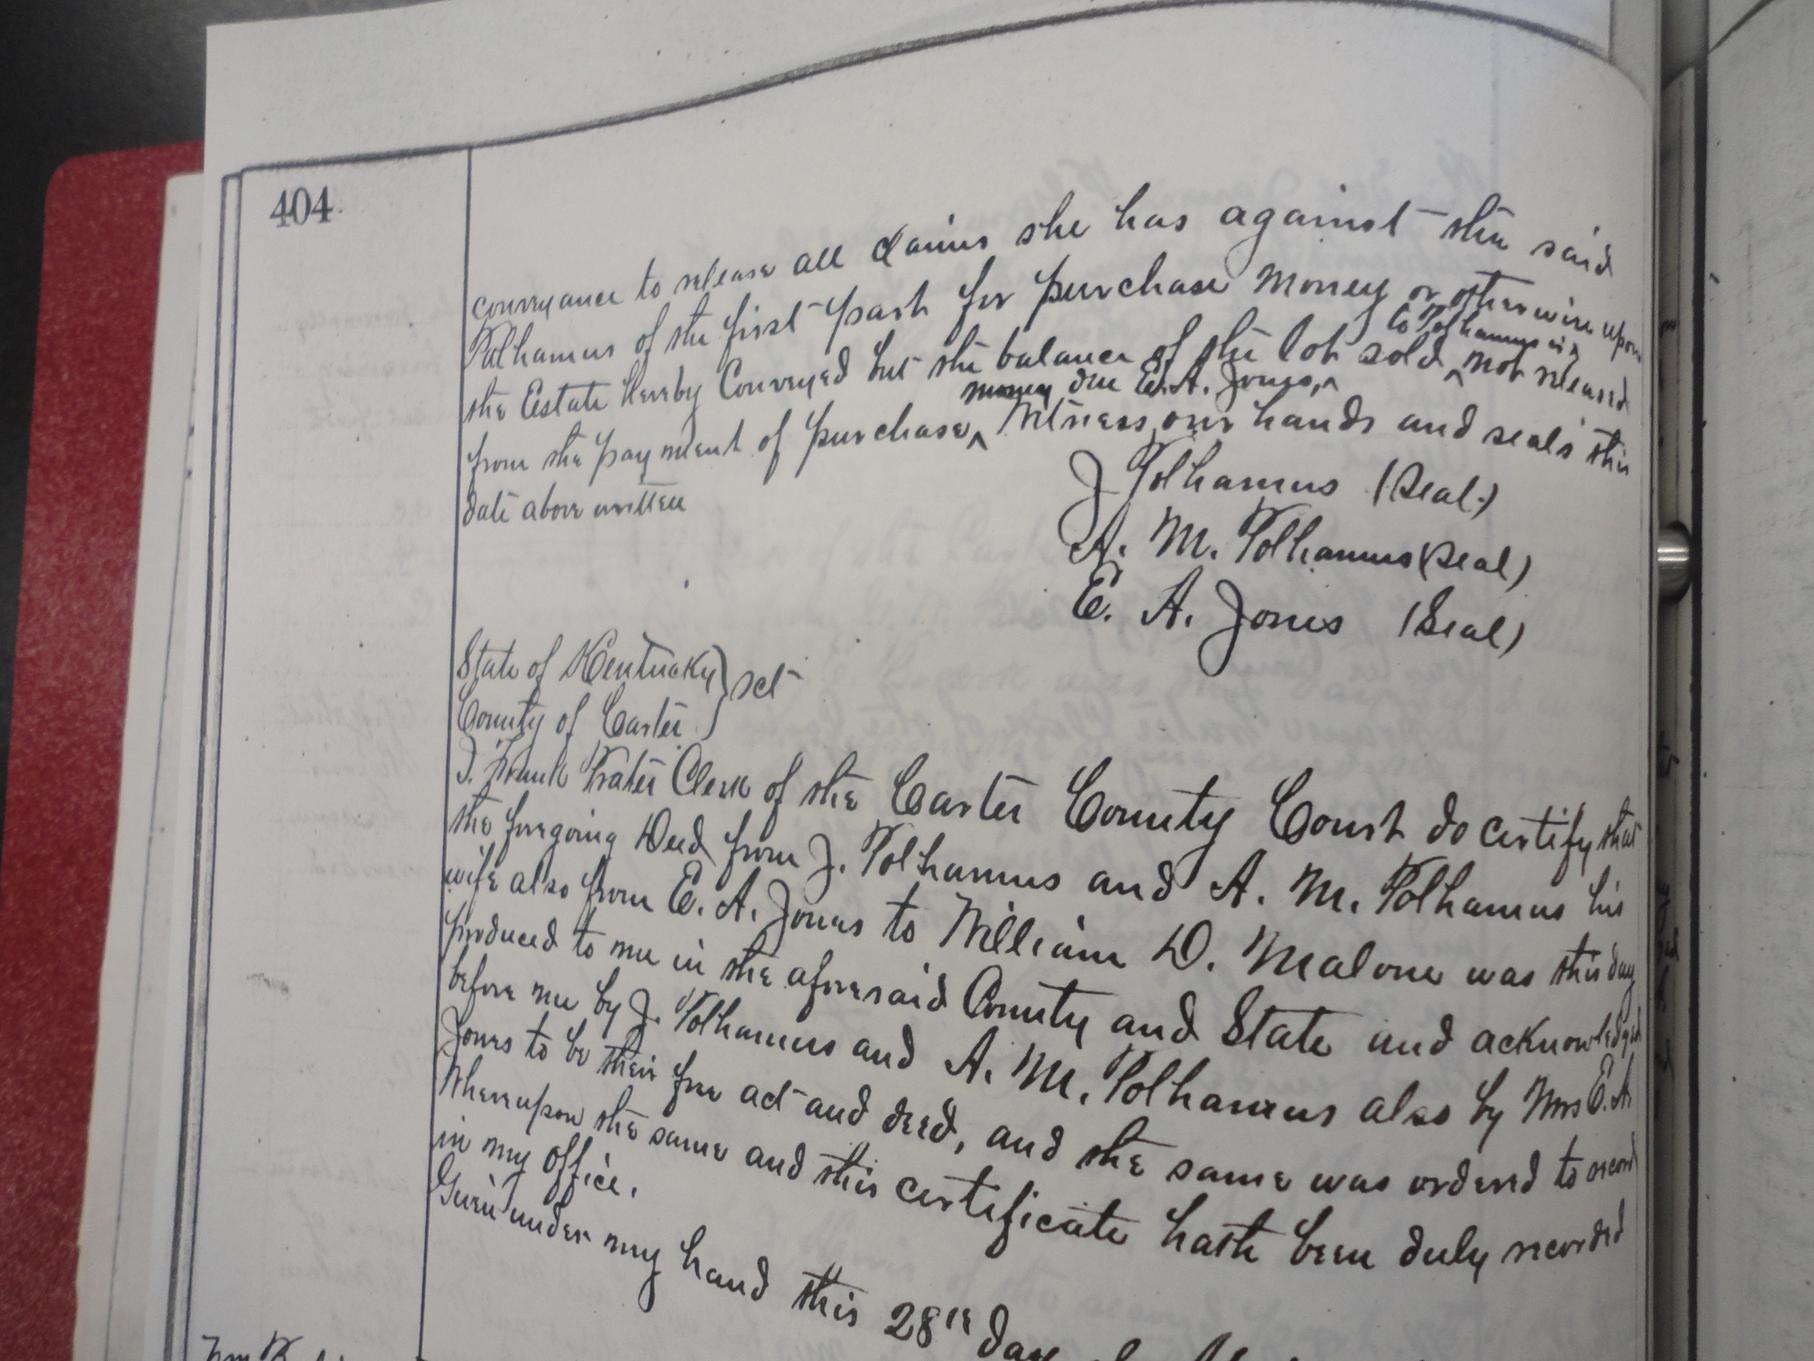 404
conveyance to release all claims she has against the said
Polhamus of the first part for purchase money or otherwise upon
the Estate hereby Conveyed but the balance of the lot sold to Polhamus is not released
from the payment of purchase money due E. A. Jones, Witness our hands and seals this
date above written
J Polhamus (Seal)
A. M. Polhamus (Seal)
E. A. Jones (Seal)
State of Kentucky } sct
County of Carter
I. Frank Prater Clerk of the Carter County Court do certify that
the foregoing Deed from J. Polhamus and A. M. Polhamus his
wife also from E. A. Jones to William D. Malone was this day
produced to me in the aforesaid County and State and acknowledged
before me by J. Polhamus and A. M. Polhamus also by Mrs E. A.
Jones to be their free act and deed, and the same was ordered to record
Whereupon the same and this certificate hath been duly recorded
in my office.
Given under my hand this 28th day